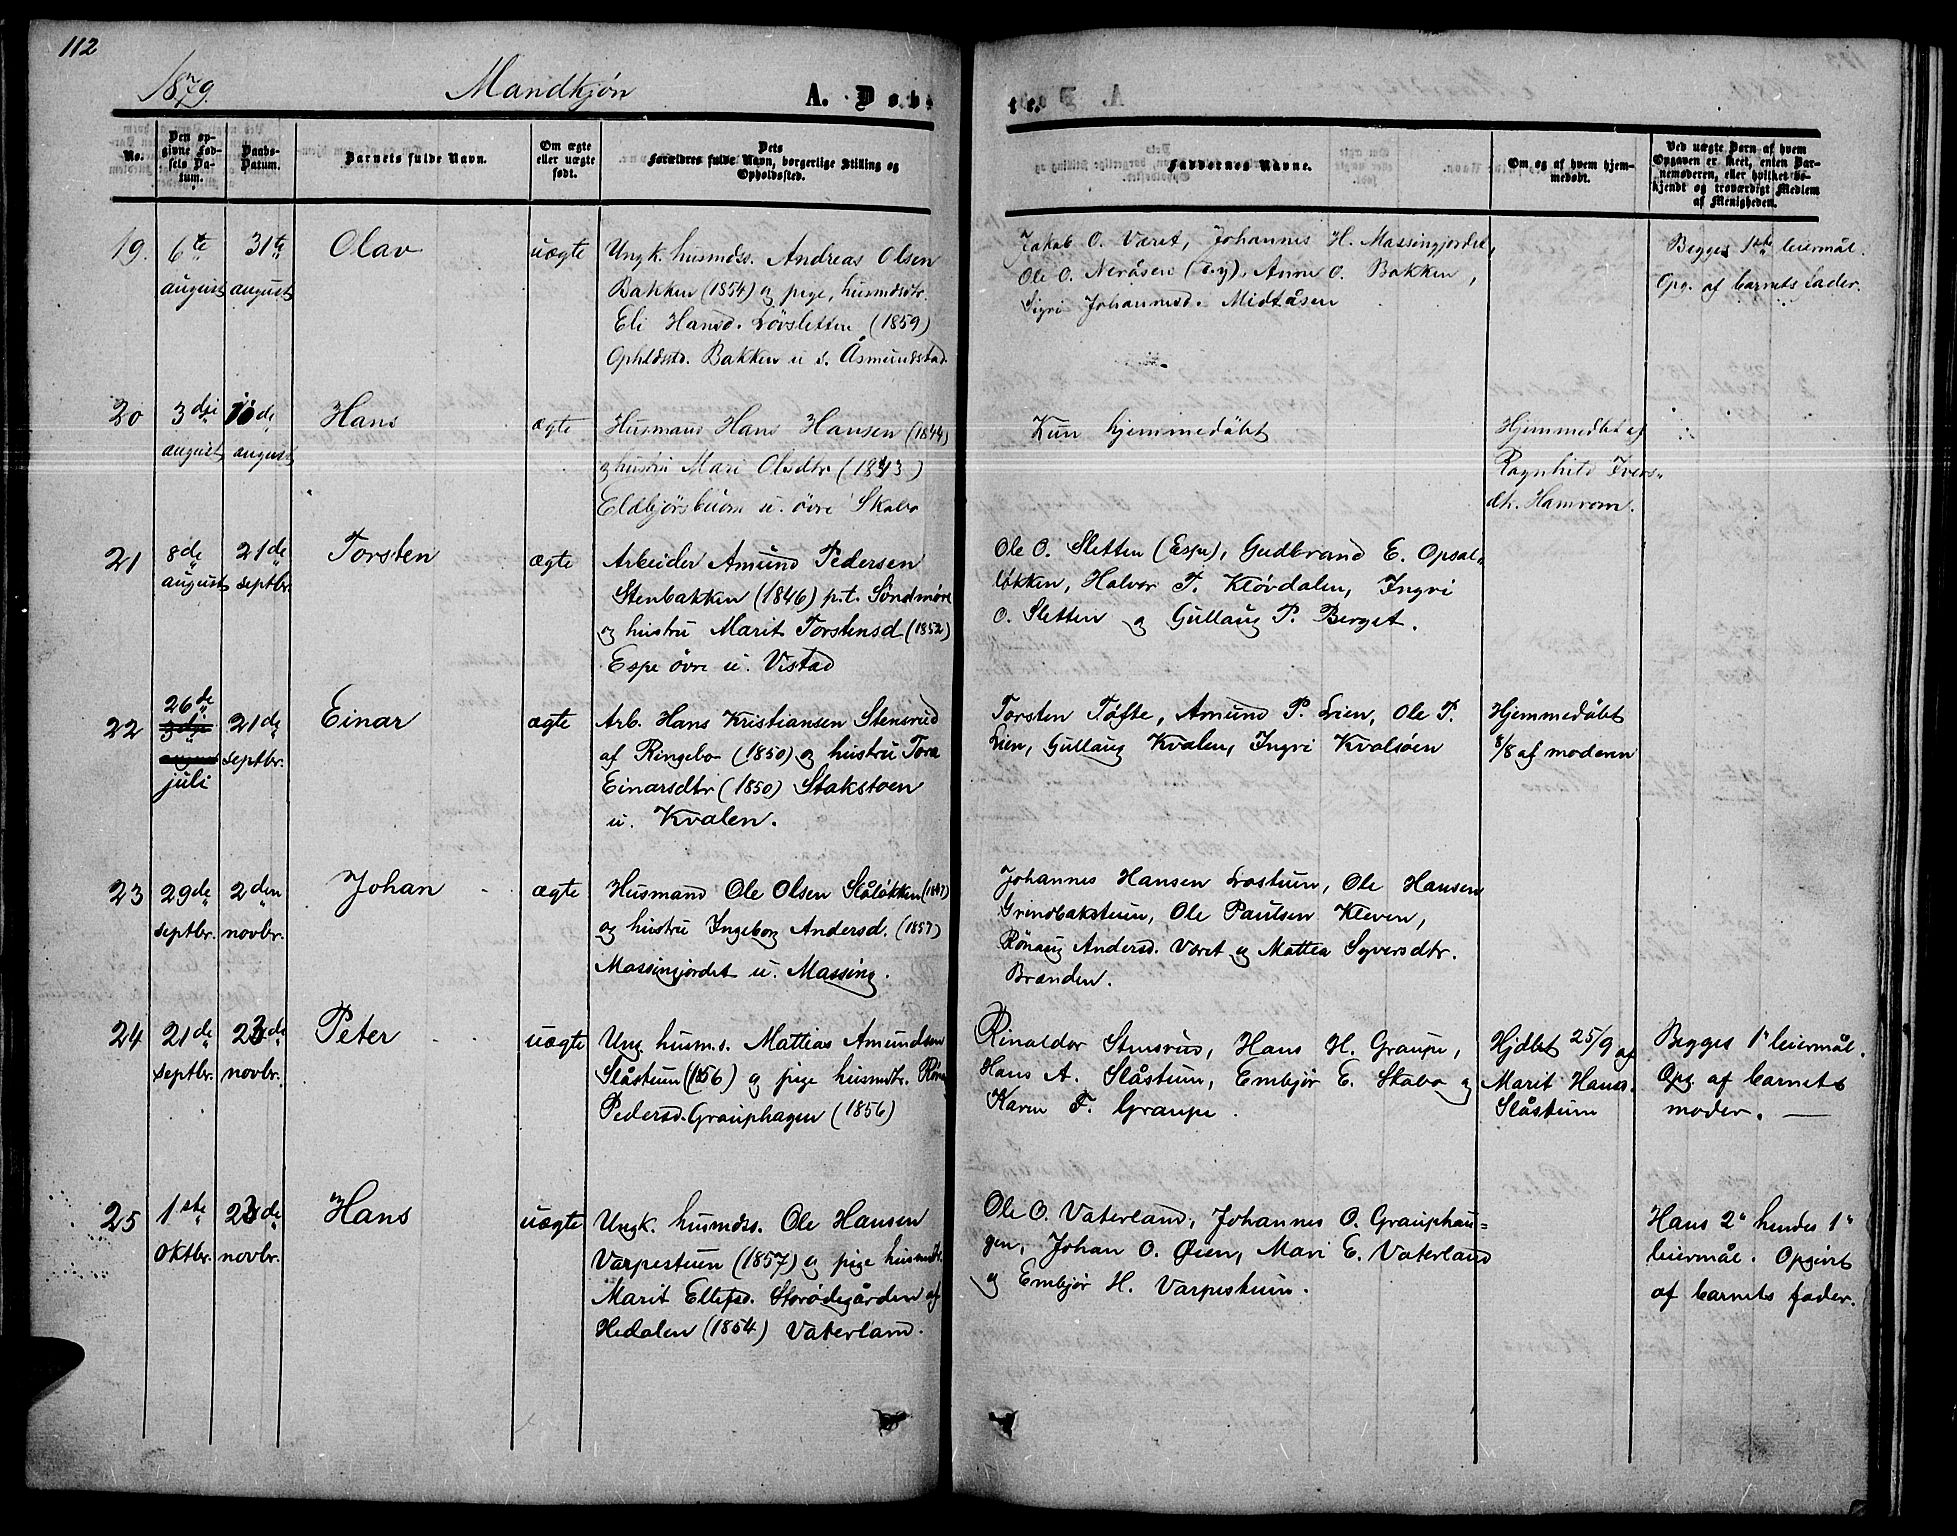 112
1879.
Mandkjøn
A. Døb-
te.
No.
Den op-
givne Fød-
sels Da-
tum.
Daabs-
Datum.
Barnets fulde Navn.
Om ægte
eller uægte
født.
Dets
Forældres fulde Navn, borgerlige Stilling og
Opholdssted.
Faddernes Navne.
Om og af hvem hjem-
medøbt.
Ved uægte Børn af hvem
Opgaven er skeet, enten Bar-
nemoderen, eller hvilket be-
kjendt og troværdigt Medlem
af Menigheden.
19.
6te
august
31te
august
Olav
uægte
Ungk. husmdss. Andreas Olsen
Bakken (1854) og pige, husmdsdtr.
Eli Hansd. Lövsletten (1859)
Opholdsstd. Bakken u s. Åsmundstad
Jakob O. Været, Johannes H. Massingjordet,
Ole O. Neråsen, Anne O. Bakken,
Sigri Johannesd. Midtåsen
Begges 1ste leiermål.
Opg. af barnets fader.
20
3dje
august
10de
august
Hans
ægte
Husmand Hans Hansen (1844)
og hustru Mari Olsdtr (1843)
Eldbjørsbuom u. övre Skabo
Kun hjemmedöbt
Hjemmedbt af
Ragnhild Ivers-
dtr. Hamrom.
21
8de
august
21de
septbr.
Torsten
ægte
Arbeider Amund Pedersen
Stenbakken (1846) p.t. Söndmöre
og hustru Marit Torstensd (1852)
Espe övre u. Vistad
Ole O. Sletten (Espe), Gudbrand E. Opsal-
løkken, Halvor T. Klövdalen, Ingri
O. Sletten og Gullaug P. Berget.
22
26de
3dje
august
juli
21de
septbr.
Einar
ægte
Arb. Hans Kristiansen Stensrud
af Ringebo (1850) og hustru Tora
Einarsdtr (1850) Stakstoen
u. Kvalen.
Torsten Töfte, Amund P. Lien, Ole P.
Lien, Gullaug Kvalen, Ingri Kvalsöen
Hjemmedöbt
8/8 af moderen
23
29de
septbr.
2den
novbr.
Johan
ægte
Husmand Ole Olsen Slåløkken
og hustru Ingeborg Andersd. (1857)
Massingjordet u. Massing.
Johannes Hansen Lostuen, Ole Hansen
Grindbakstuen, Ole Paulsen Kleven,
Rönaug Andersd. Været og Mattea Syversdtr.
Brænden.
24
21de
septbr.
23de
novbr.
Peter
uægte
Ung. husm.s. Mattias Amundsen
Slåstuen (1856) og pige husmdtr.
Pedersd. Grauphagen (1856)
Rinaldor Stensrud, Hans H. Graupe,
Hans A. Slåstuen, Embjør E. Skabo og
Karen F. Graupe.
Hjdbt 25/9 af
Marit Hansd.
Slåstuen
Begges 1ste leiermål.
Opg. af barnets
moder. —
25
1ste
Oktbr.
23de
novbr.
Hans
uægte
Ungk. husmdss. Ole Hansen
Varpestuen (1857) og pige husmdtr.
Marit Ellefsd. Storödegården af
Hedalen (1854) Vaterland.
Ole O. Vaterland, Johannes O. Grauphau-
gen, Johan O. Øien, Mari E. Vaterland
og Embjør H. Varpestuen.
Hans 2" hendes 1"
leiermål. Opgivet
af barnets fader.